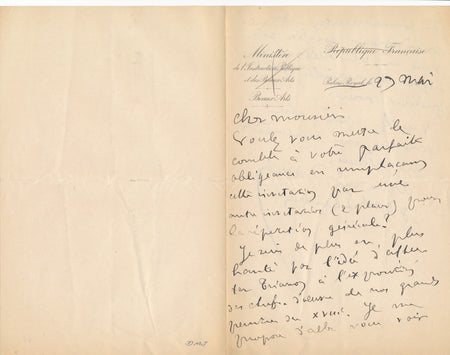 Ministère
de l'Instruction Publique
et des Beaux-Arts
Beaux-Arts
République Française
Palais-Royal, le 27 mai
Cher monsieur
Voulez vous mettre le
comble à votre parfaite
obligeance en remplaçant
cette invitation par une
autre invitation (2 places) pour
la répétition générale?
Je suis de plus en plus
hanté par l'idée d'affec
ter Trianon à l'exposition
des chefs-d'œuvre de nos grands
peintres du XVIII. Je me
propose d'aller vous voir